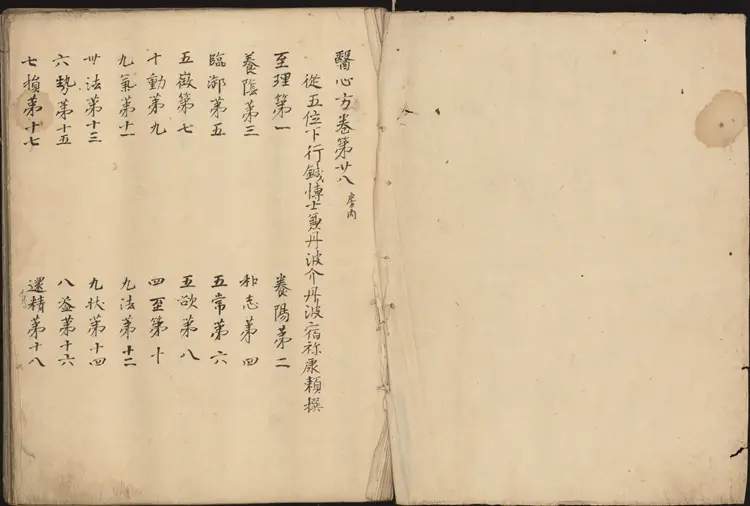 醫心方卷第廿八 房内
從五位下行鍼博士兼丹波介丹波宿祢康頼撰
至理第一 養陽第二
養陰第三 和志第四
臨御第五 五常第六
五徴第七 五欲第八
十動第九 四至第十
九氣第十一 九法第十二
卅法第十三 九状第十四
六勢第十五 八益第十六
七損第十七 還精第十八